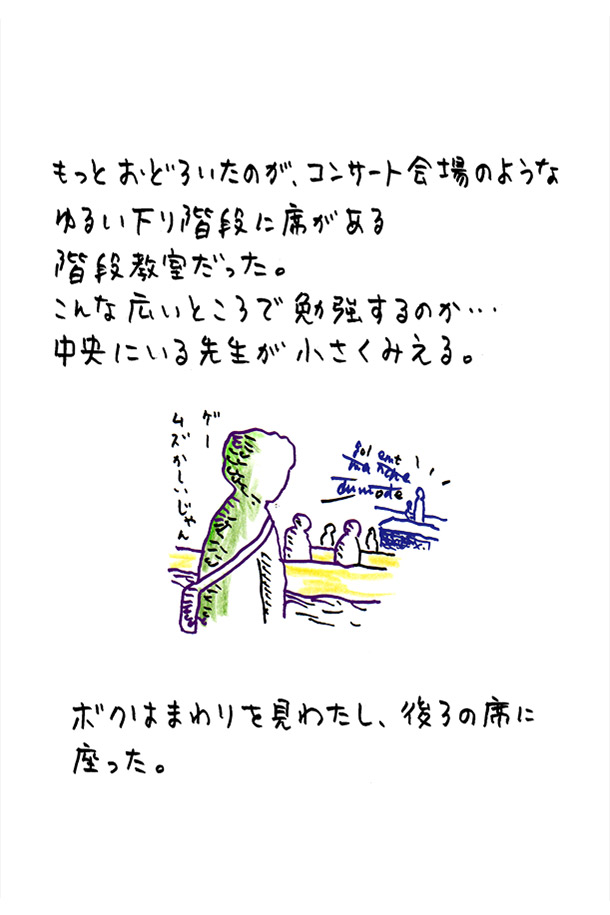 もっとおどろいたのが、コンサート会場のような
ゆるい下り階段に席がある
階段教室だった。
こんな広いところで勉強するのか…
中央にいる先生が小さくみえる。
ゲー
ムズかしいじゃん
ボクはまわりを見わたし、後ろの席に
座った。